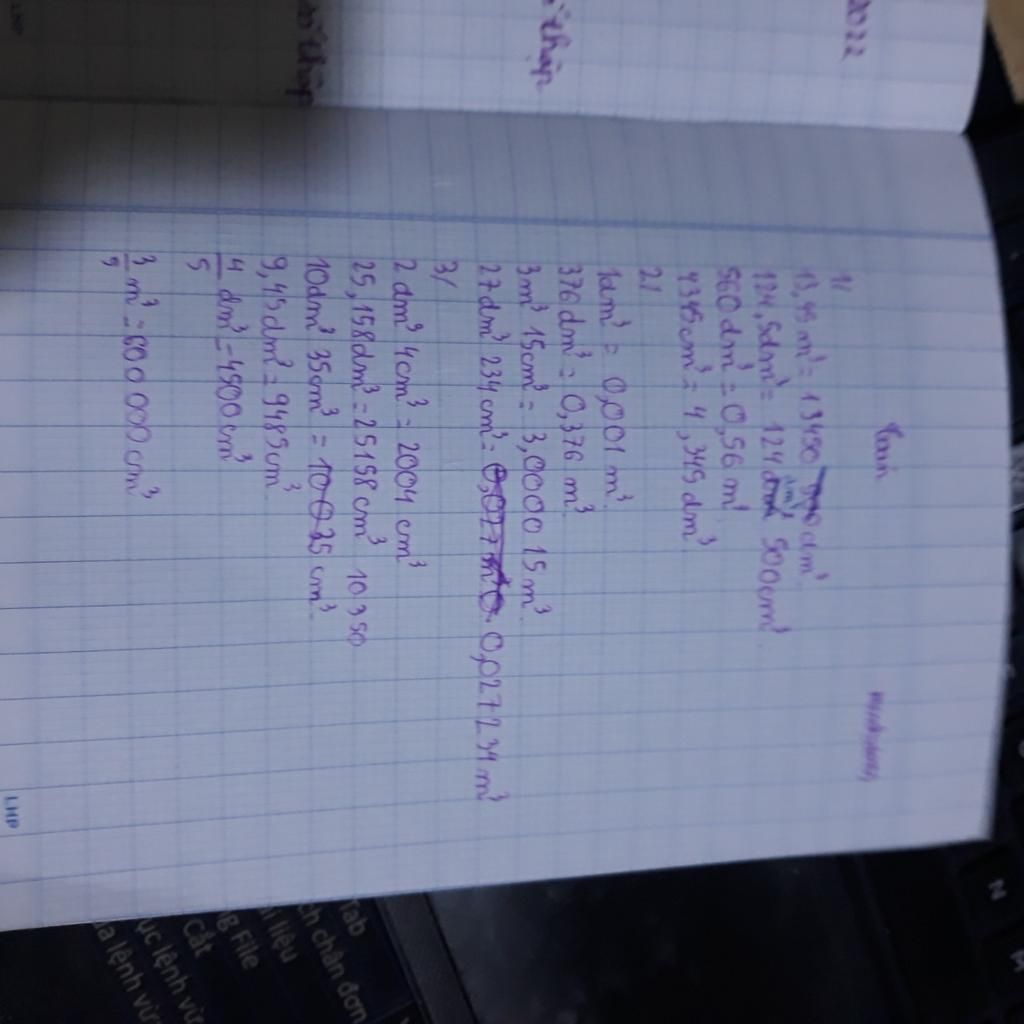 2022
thập
thập
Toán
1/
13,45 m³ = 13450 dm³
124,5dm³ = 124 dm³ 500cm³
560 dm³ = 0,56 m³
4345cm³ = 4,345 dm³
2/
1dm³ = 0,001 m³
376 dm³ = 0,376 m³
3m³ 15cm³ = 3,000015 m³
27dm³ 234 cm³ = 0,027 m³ 0 0,027234 m³
3/
2 dm³ 4cm³ = 2004 cm³
25,158dm³ = 25158 cm³ 10350
10dm³ 35cm³ = 10 035 cm³
9,45dm³ = 9485cm³
4/5 dm³ = 4500cm³
3/5 m³ = 600 000cm³
LHP
LHP
Tab
chân đơn
liệu
File
Cắt
lệnh
lệnh
N
M